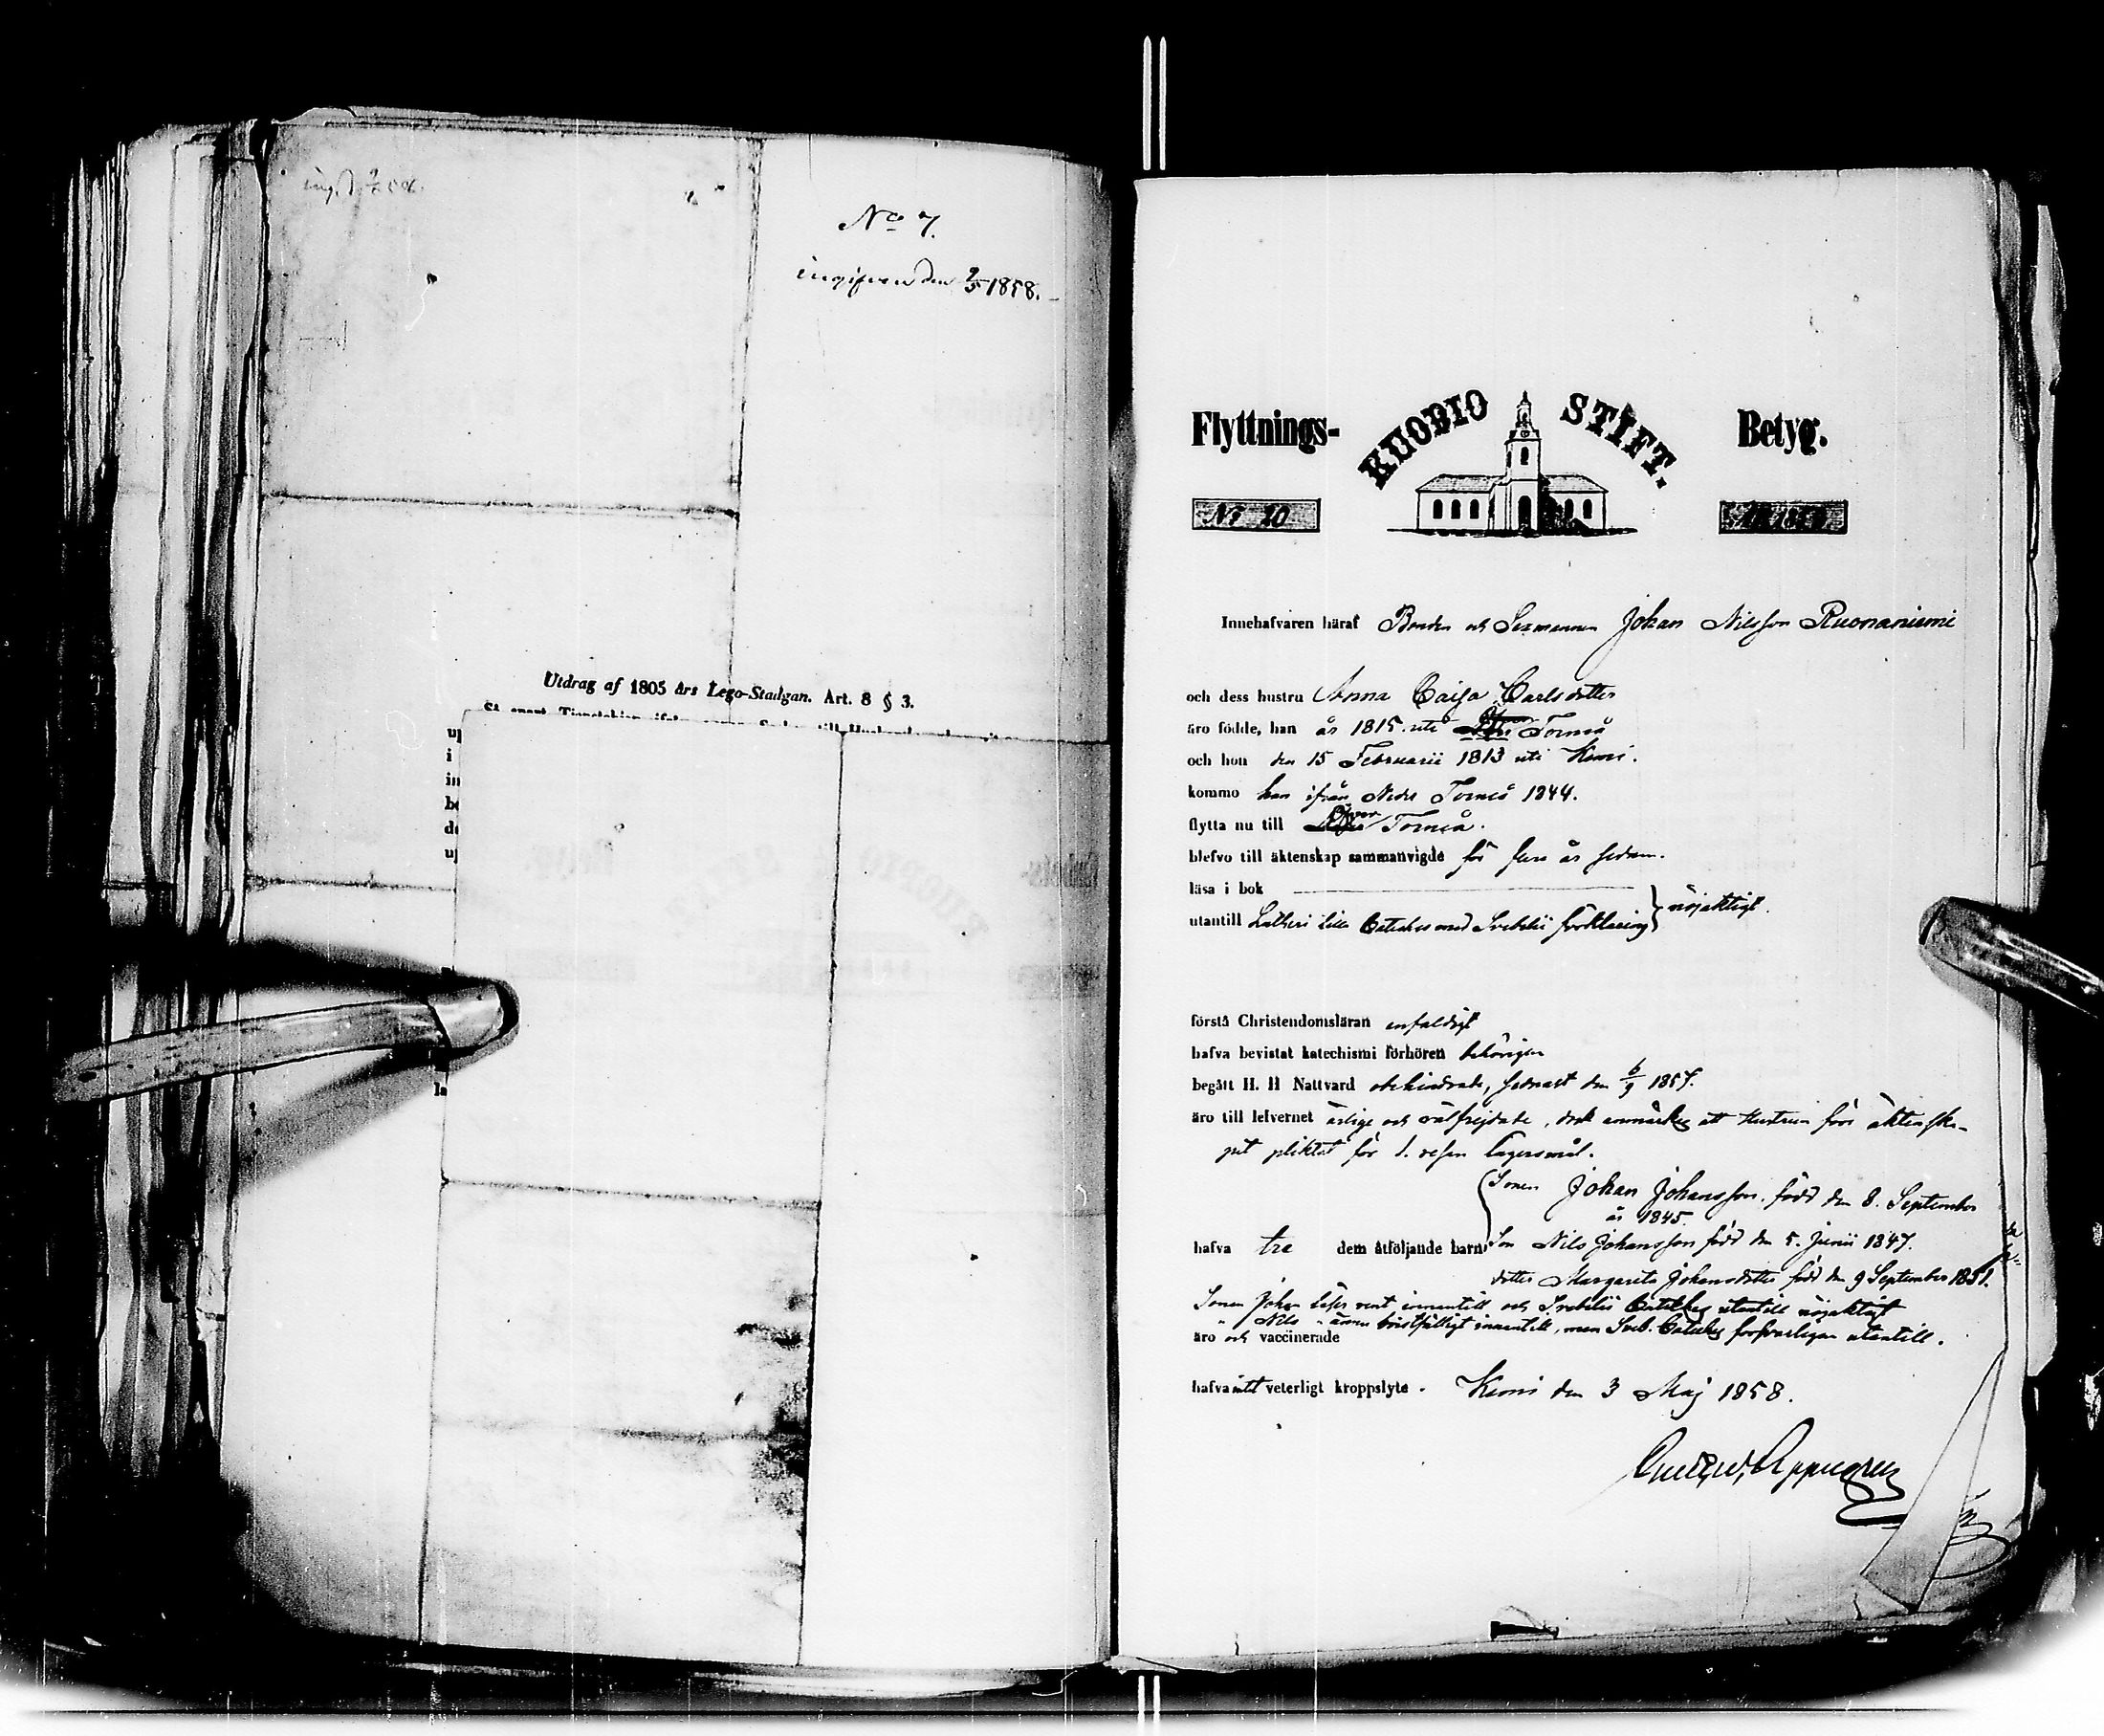 No 7.
ingifven den 9/5 1858.
Utdrag af 1805 års Lego-Stadgan. Art. 8 § 3.
Flyttnings- KUOBIO STIFT. Betyg.
No 20
Innehafvaren häraf Bonden och Sexmannen Johan Nilsson Ruonaniemi
och dess hustru Anna Caisa Carlsdotter
äro födde, han år 1815 uti Öfver Torneå
och hon den 15 Februarii 1813 uti Kemi.
kommo han ifrån Neder Torneå 1844.
flytta nu till Öfver Torneå.
blefvo till äktenskap sammanvigde för flere år sedan.
läsa i bok
utantill Lutheri lilla Cateches med Svebelii förklaring } nöjaktigt.
förstå Christendomsläran enfaldigt
hafva bevistat katechismi förhören behörigen
begått H. H Nattvard obehindrade, sednast den 6/9 1857.
äro till lefvernet ärlige och välfrejdade, dock anmärkes att Hustrun före äktenska-
pet pliktat för 1. resan Lägersmål.
Sonen Johan Johansson, född den 8. September
år 1845.
hafva tre dem åtföljande barn Son Nils Johansson född den 5. Junii 1847.
dotter Margareta Johansdotter född den 9 September 1851.
Sonen Johan läser rent innantill och Svebelii Cateches utantill nöjaktigt
" Nils " ännu bristfälligt innantill, men Sveb. Cateches försvarligen utantill.
äro och vaccinerade
hafva intet veterligt kroppslyte. Kemi den 3 Maj 1858.